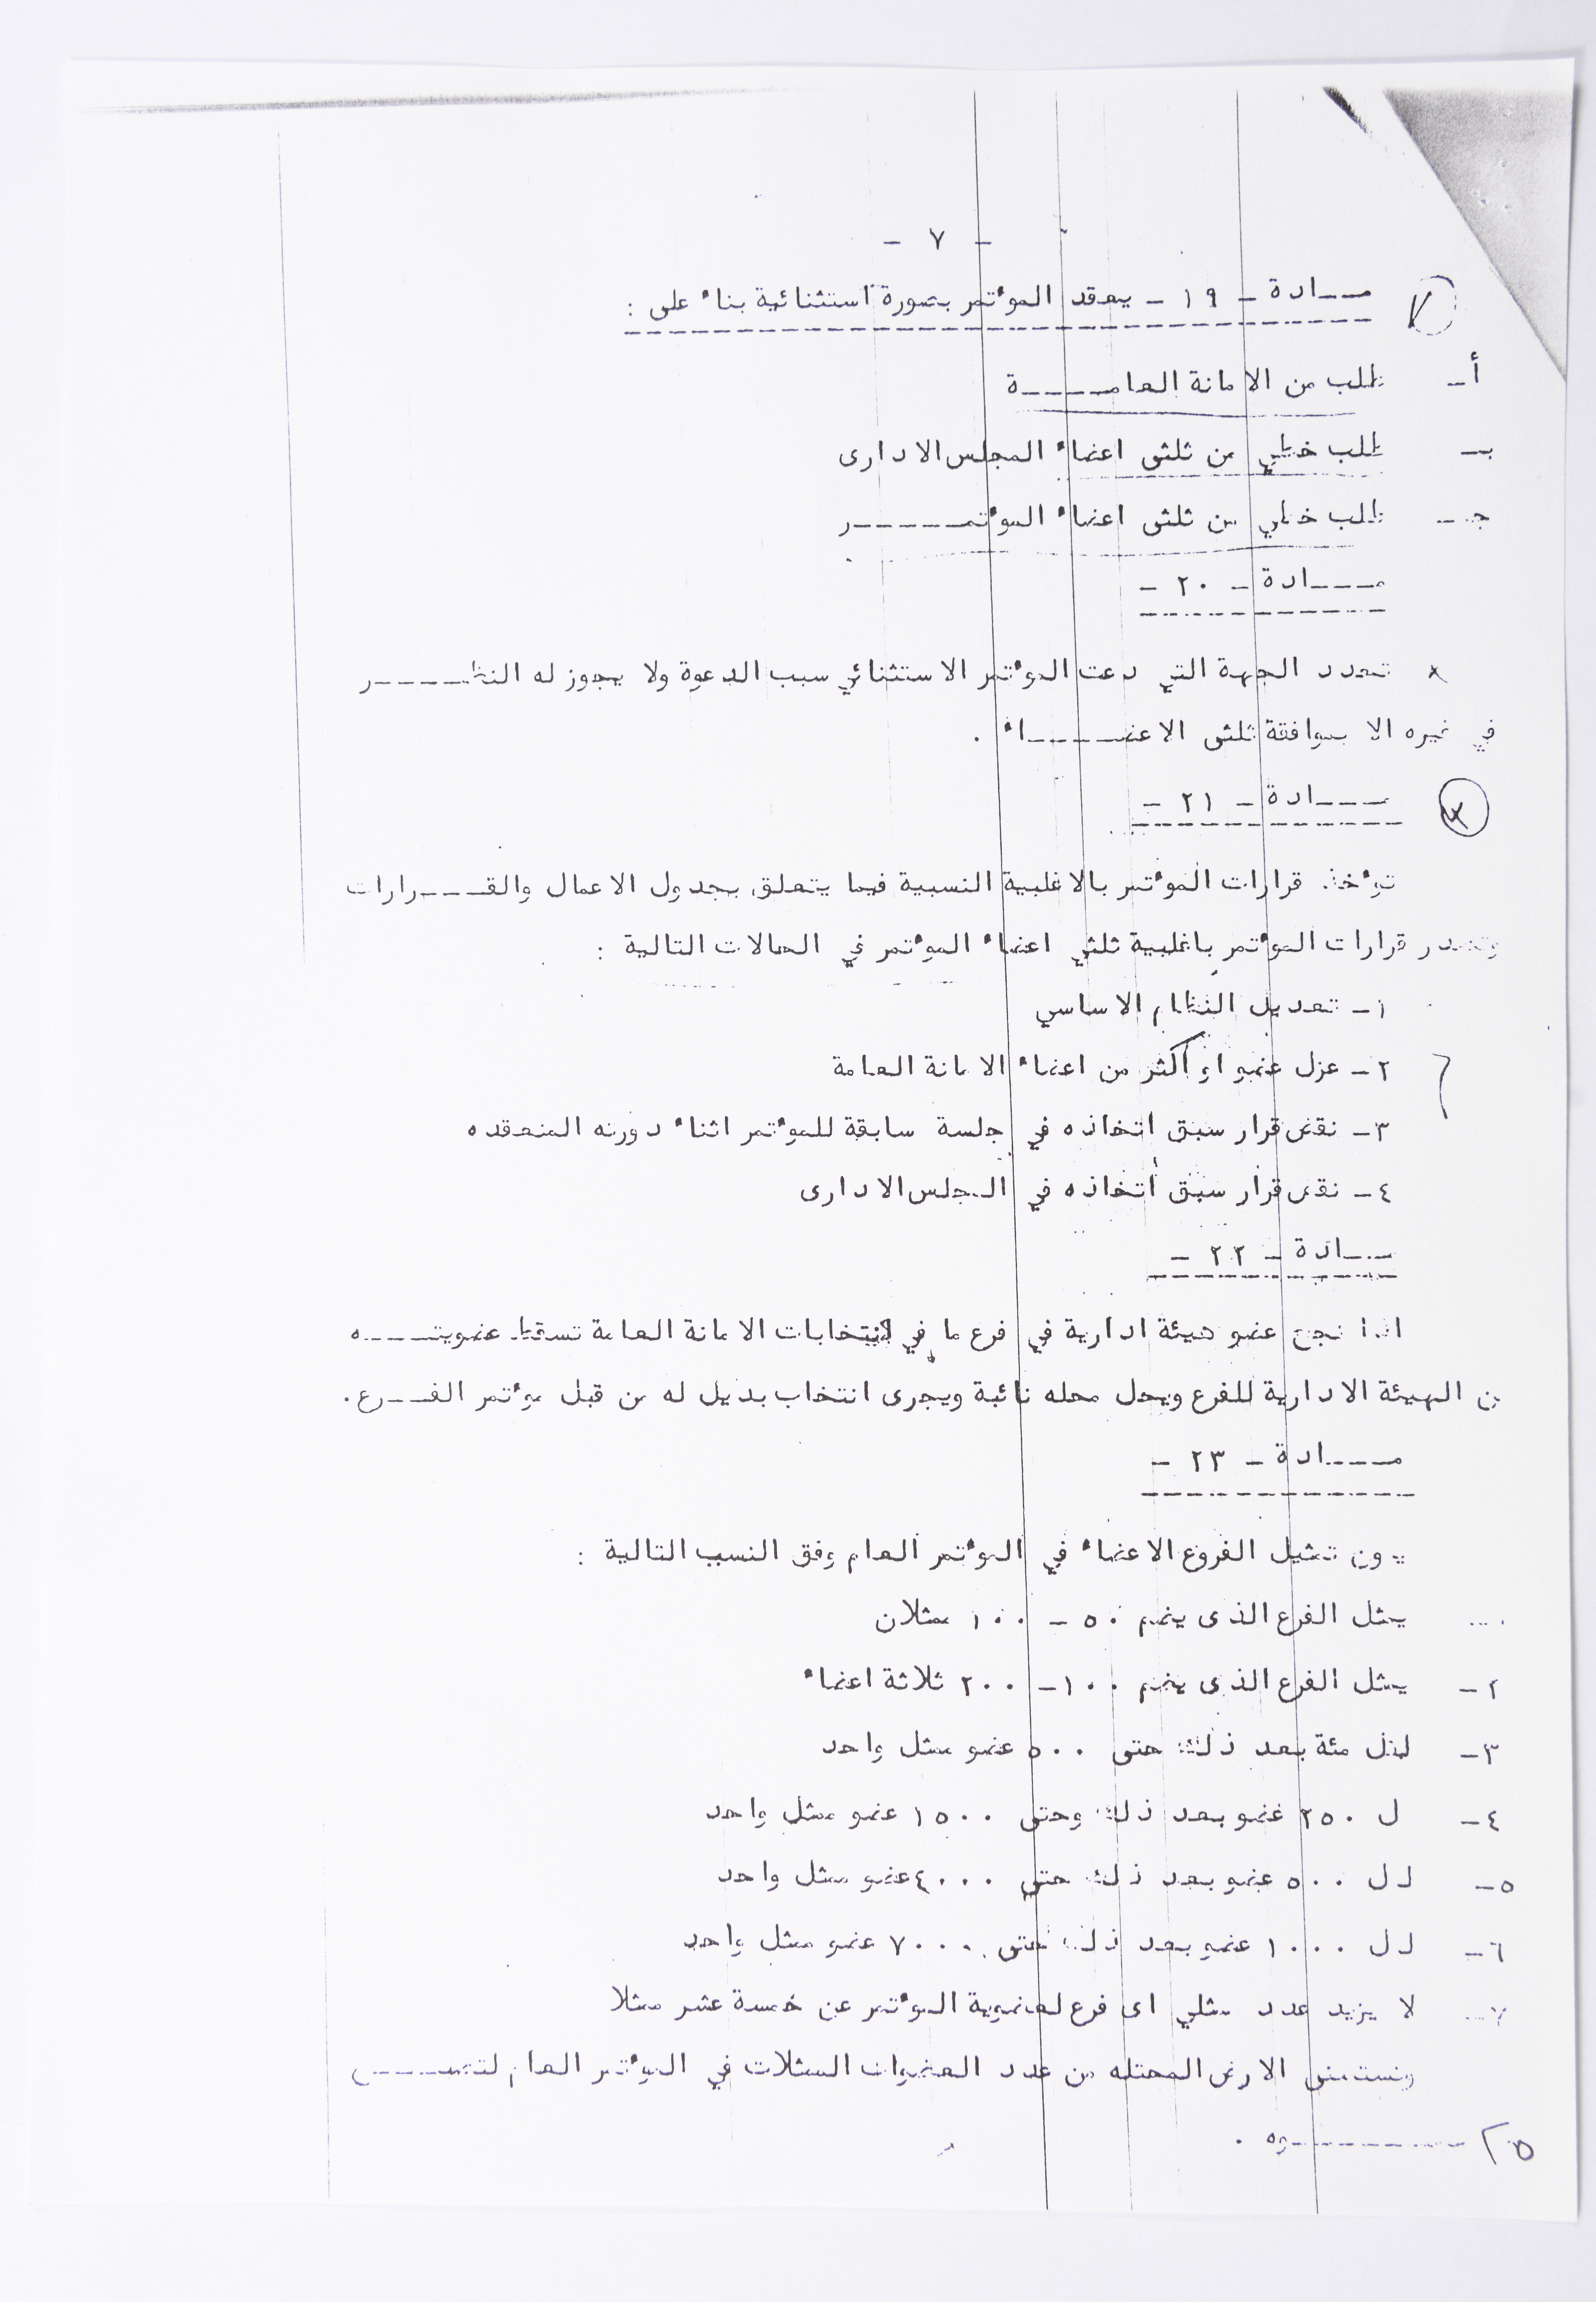 - ٧ -
مـــادة - ١٩ - يعقد المؤتمر بصورة استثنائية بناء على :
أ- طلب من الامانة العامـــــة
ب- طلب خطي من ثلثى اعضاء المجلس الادارى
جـ- طلب خطي من ثلثى اعضاء المؤتمــــــر
مــــادة - ٢٠ -
تحدد الجهة التي دعت المؤتمر الاستثنائي سبب الدعوة ولا يجوز له النظـــــر
في غيره الا بموافقة ثلثى الاعضـــــاء .
مــــادة - ٢١ -
تؤخذ قرارات المؤتمر بالاغلبية النسبية فيما يتعلق بجدول الاعمال والقــــرارات
وتصدر قرارات المؤتمر باغلبية ثلثي اعضاء المؤتمر في الحالات التالية :
١- تعديل النظام الاساسي
٢- عزل عضو او أكثر من اعضاء الامانة العامة
٣- نقض قرار سبق اتخاذه في جلسة سابقة للمؤتمر اثناء دورته المنعقده
٤- نقض قرار سبق اتخاذه في المجلس الادارى
مـــادة - ٢٢ -
اذا نجح عضو هيئة ادارية في فرع ما في انتخابات الامانة العامة تسقط عضويتــــه
من الهيئة الادارية للفرع ويحل محله نائبة ويجرى انتخاب بديل له من قبل مؤتمر الفـــرع .
مــــادة - ٢٣ -
تمثيل الفروع الاعضاء في المؤتمر العام وفق النسب التالية :
يمثل الفرع الذى يضم ٥٠ - ١٠٠ ممثلان
٢- يمثل الفرع الذى يضم ١٠٠ - ٢٠٠ ثلاثة اعضاء
٣- لكل مئة بعد ذلك حتى ٥٠٠ عضو ممثل واحد
٤- ل ٢٥٠ عضو بعد ذلك وحتى ١٥٠٠ عضو ممثل واحد
٥- لـ ٥٠٠ عضو بعد ذلك حتى ٤٠٠٠ عضو ممثل واحد
٦- لـ ١٠٠٠ عضو بعد ذلك حتى ٧٠٠٠ عضو ممثل واحد
٧- لا يزيد عدد ممثلي اى فرع لعضوية المؤتمر عن خمسة عشر ممثلا
الارض المحتله من عدد العضوات الممثلات في المؤتمر العام